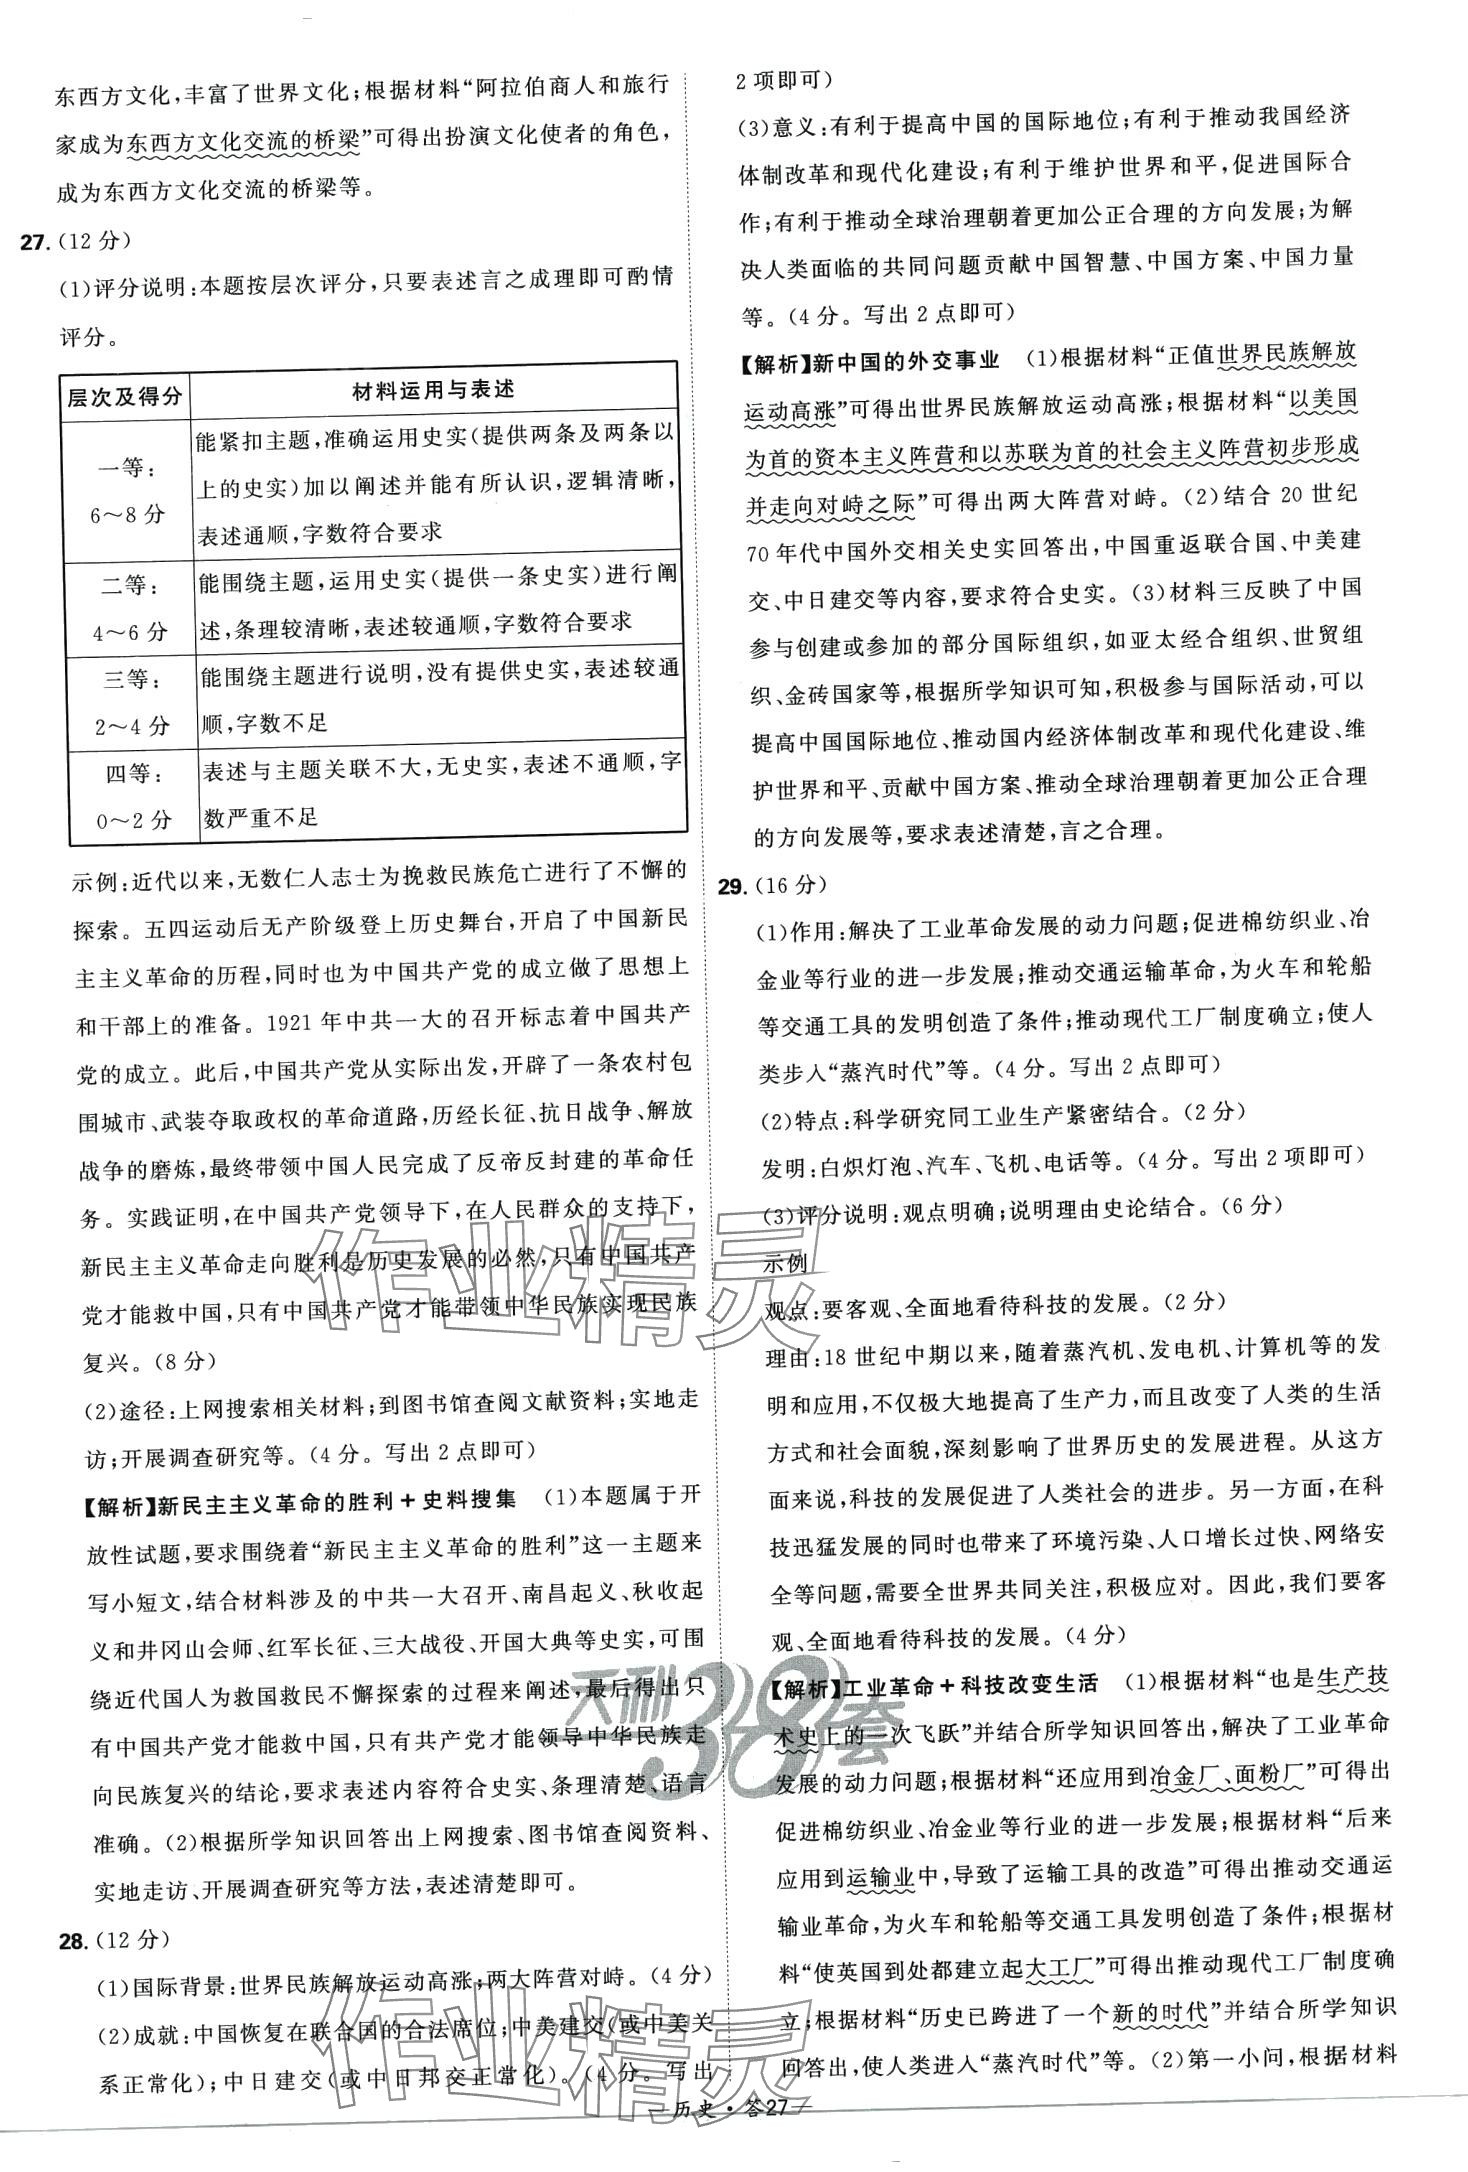 东西方文化,丰富了世界文化;根据材料“阿拉伯商人和旅行
家成为东西方文化交流的桥梁”可得出扮演文化使者的角色,
成为东西方文化交流的桥梁等。
27.(12 分)
(1)评分说明:本题按层次评分,只要表述言之成理即可酌情
评分。
层次及得分 材料运用与表述
一等:
6～8 分
能紧扣主题,准确运用史实(提供两条及两条以
上的史实)加以阐述并能有所认识,逻辑清晰,
表述通顺,字数符合要求
二等:
4～6 分
能围绕主题,运用史实(提供一条史实)进行阐
述,条理较清晰,表述较通顺,字数符合要求
三等:
2～4 分
能围绕主题进行说明,没有提供史实,表述较通
顺,字数不足
四等:
0～2 分
表述与主题关联不大,无史实,表述不通顺,字
数严重不足
示例:近代以来,无数仁人志士为挽救民族危亡进行了不懈的
探索。五四运动后无产阶级登上历史舞台,开启了中国新民
主主义革命的历程,同时也为中国共产党的成立做了思想上
和干部上的准备。1921 年中共一大的召开标志着中国共产
党的成立。此后,中国共产党从实际出发,开辟了一条农村包
围城市、武装夺取政权的革命道路,历经长征、抗日战争、解放
战争的磨炼,最终带领中国人民完成了反帝反封建的革命任
务。实践证明,在中国共产党领导下,在人民群众的支持下,
新民主主义革命走向胜利是历史发展的必然,只有中国共产
党才能救中国,只有中国共产党才能带领中华民族实现民族
复兴。(8 分)
(2)途径:上网搜索相关材料;到图书馆查阅文献资料;实地走
访;开展调查研究等。(4 分。写出 2 点即可)
【解析】新民主主义革命的胜利＋史料搜集 (1)本题属于开
放性试题,要求围绕着“新民主主义革命的胜利”这一主题来
写小短文,结合材料涉及的中共一大召开、南昌起义、秋收起
义和井冈山会师、红军长征、三大战役、开国大典等史实,可围
绕近代国人为救国救民不懈探索的过程来阐述,最后得出只
有中国共产党才能救中国,只有中国共产党才能领导中华民族走
向民族复兴的结论,要求表述内容符合史实、条理清楚、语言
准确。(2)根据所学知识回答出上网搜索、图书馆查阅资料、
实地走访、开展调查研究等方法,表述清楚即可。
28.(12 分)
(1)国际背景:世界民族解放运动高涨;两大阵营对峙。(4 分)
(2)成就:中国恢复在联合国的合法席位;中美建交(或中美关
系正常化);中日建交(或中日邦交正常化)。(4 分。写出
2 项即可)
(3)意义:有利于提高中国的国际地位;有利于推动我国经济
体制改革和现代化建设;有利于维护世界和平,促进国际合
作;有利于推动全球治理朝着更加公正合理的方向发展;为解
决人类面临的共同问题贡献中国智慧、中国方案、中国力量
等。(4 分。写出 2 点即可)
【解析】新中国的外交事业 (1)根据材料“正值世界民族解放
运动高涨”可得出世界民族解放运动高涨;根据材料“以美国
为首的资本主义阵营和以苏联为首的社会主义阵营初步形成
并走向对峙之际”可得出两大阵营对峙。(2)结合 20 世纪
70 年代中国外交相关史实回答出,中国重返联合国、中美建
交、中日建交等内容,要求符合史实。(3)材料三反映了中国
参与创建或参加的部分国际组织,如亚太经合组织、世贸组
织、金砖国家等,根据所学知识可知,积极参与国际活动,可以
提高中国国际地位、推动国内经济体制改革和现代化建设、维
护世界和平、贡献中国方案、推动全球治理朝着更加公正合理
的方向发展等,要求表述清楚,言之合理。
29.(16 分)
(1)作用:解决了工业革命发展的动力问题;促进棉纺织业、冶
金业等行业的进一步发展;推动交通运输革命,为火车和轮船
等交通工具的发明创造了条件;推动现代工厂制度确立;使人
类步入“蒸汽时代”等。(4 分。写出 2 点即可)
(2)特点:科学研究同工业生产紧密结合。(2 分)
发明:白炽灯泡、汽车、飞机、电话等。(4 分。写出 2 项即可)
(3)评分说明:观点明确;说明理由史论结合。(6 分)
示例
观点:要客观、全面地看待科技的发展。(2 分)
理由:18 世纪中期以来,随着蒸汽机、发电机、计算机等的发
明和应用,不仅极大地提高了生产力,而且改变了人类的生活
方式和社会面貌,深刻影响了世界历史的发展进程。从这方
面来说,科技的发展促进了人类社会的进步。另一方面,在科
技迅猛发展的同时也带来了环境污染、人口增长过快、网络安
全等问题,需要全世界共同关注,积极应对。因此,我们要客
观、全面地看待科技的发展。(4 分)
【解析】工业革命＋科技改变生活 (1)根据材料“也是生产技
术史上的一次飞跃”并结合所学知识回答出,解决了工业革命
发展的动力问题;根据材料“还应用到冶金厂、面粉厂”可得出
促进棉纺织业、冶金业等行业的进一步发展;根据材料“后来
应用到运输业中,导致了运输工具的改造”可得出推动交通运
输业革命,为火车和轮船等交通工具发明创造了条件;根据材
料“使英国到处都建立起大工厂”可得出推动现代工厂制度确
立;根据材料“历史已跨进了一个新的时代”并结合所学知识
回答出,使人类进入“蒸汽时代”等。(2)第一小问,根据材料
历史·答27
作业精灵
天利38套
作业精灵